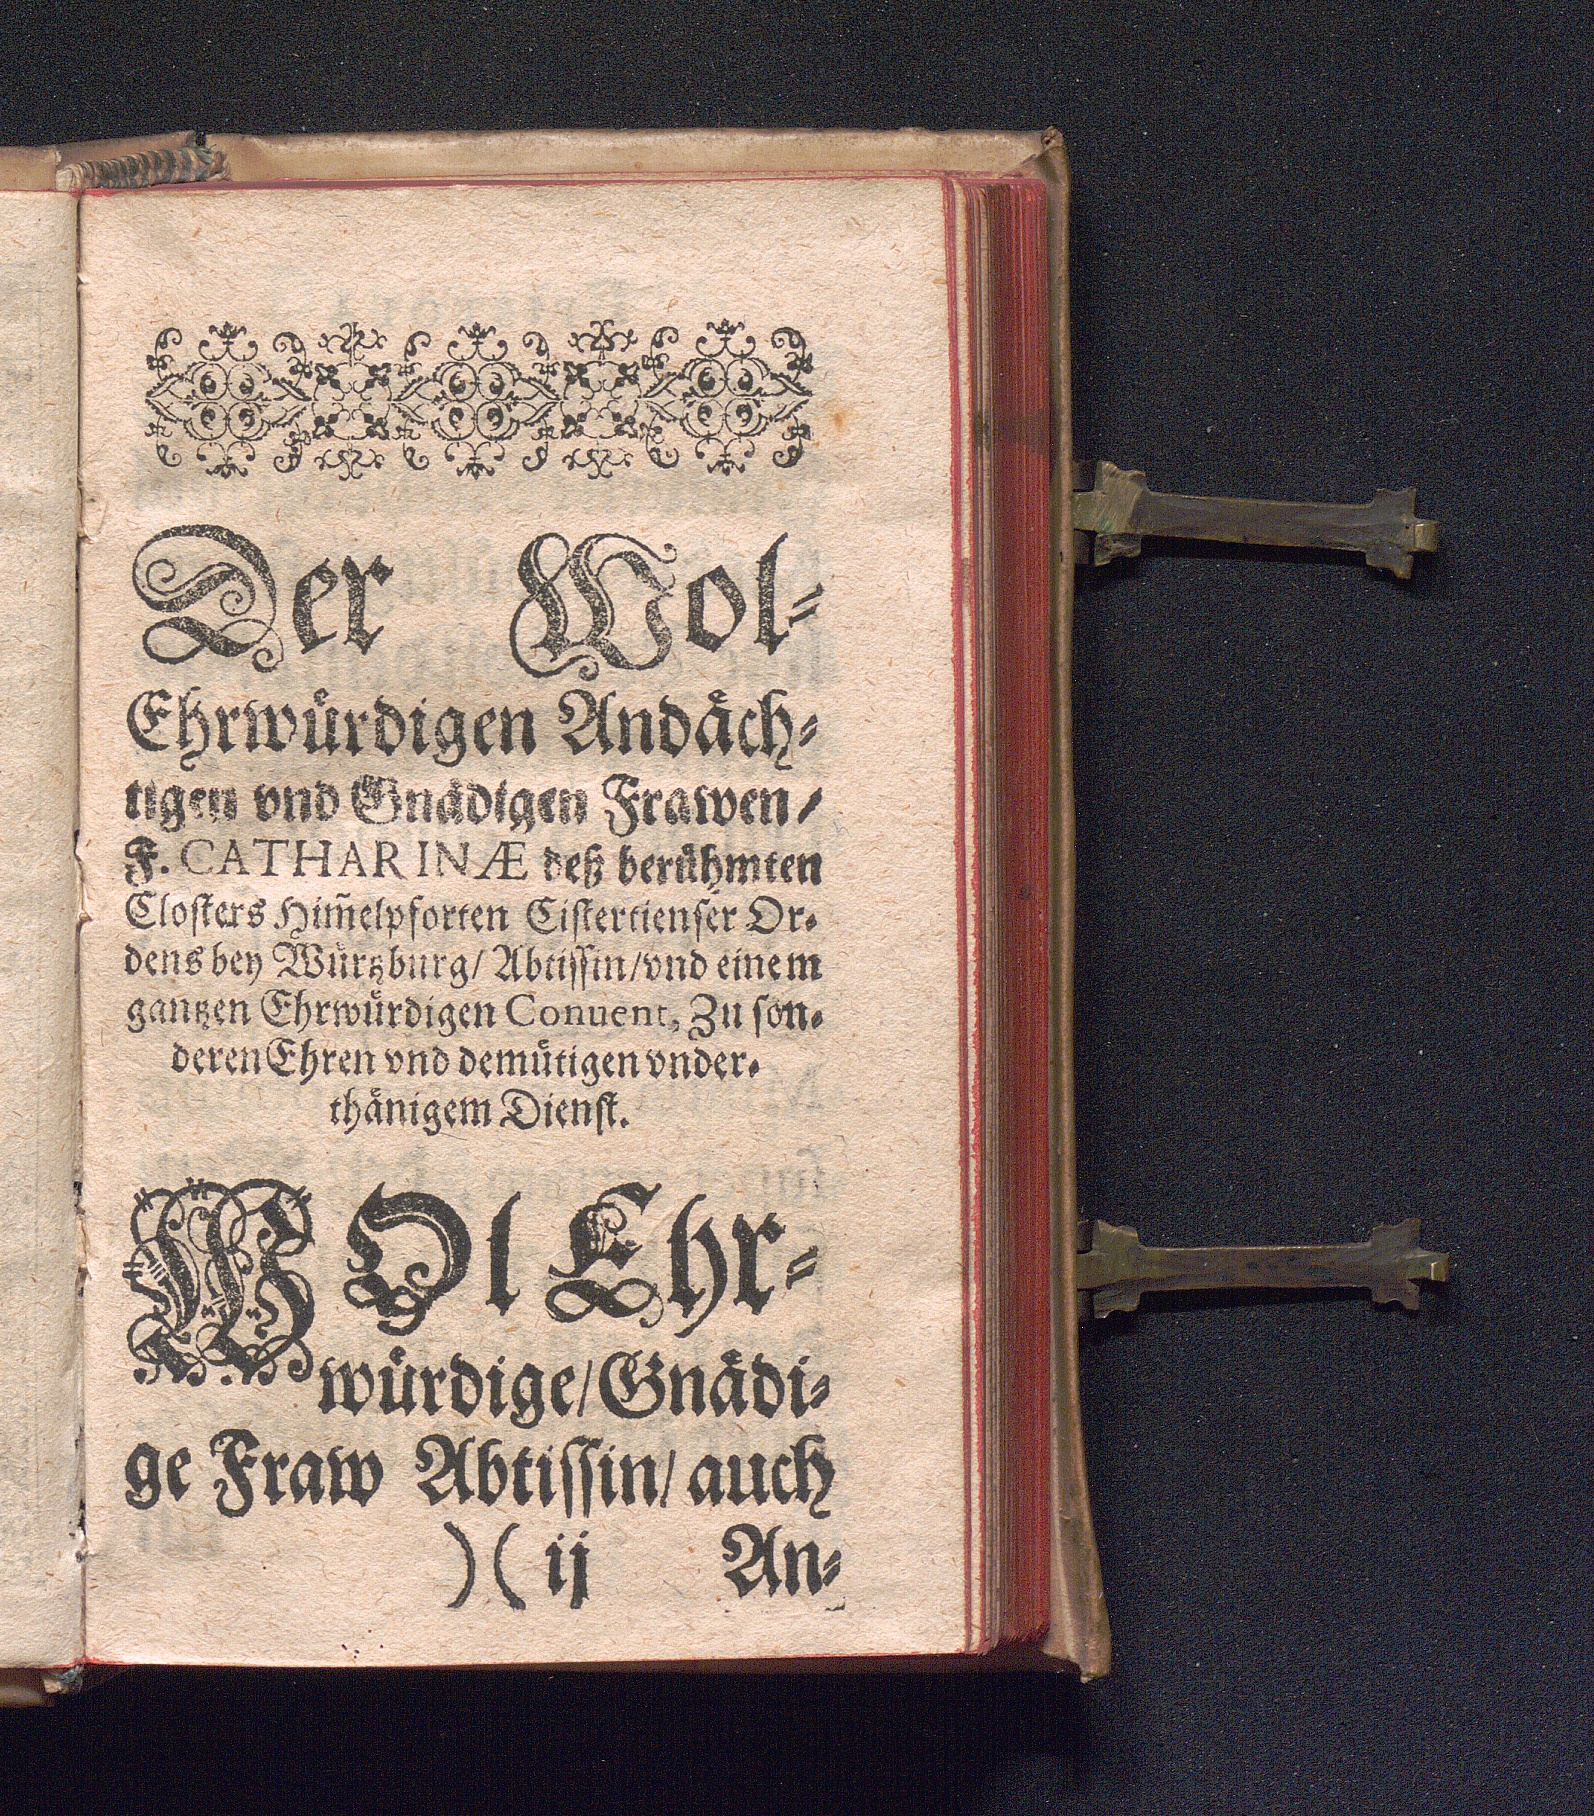 Der Wol⸗
Ehrwuͤrdigen Andaͤch⸗
tigen vnd Gnaͤdigen Frawen/
F. CATHARINÆ deß beruͤhmten
Closters Him̃elpforten Cistertienser Or⸗
dens bey Wuͤrtzburg/ Abtissin/ vnd einem
gantzen Ehrwuͤrdigen Conuent, Zu son⸗
deren Ehren vnd demuͤtigen vnder⸗
thaͤnigem Dienst.
WOl Ehr⸗
wuͤrdige/ Gnaͤdi⸗
ge Fraw Abtissin/ auch
)( ij An⸗